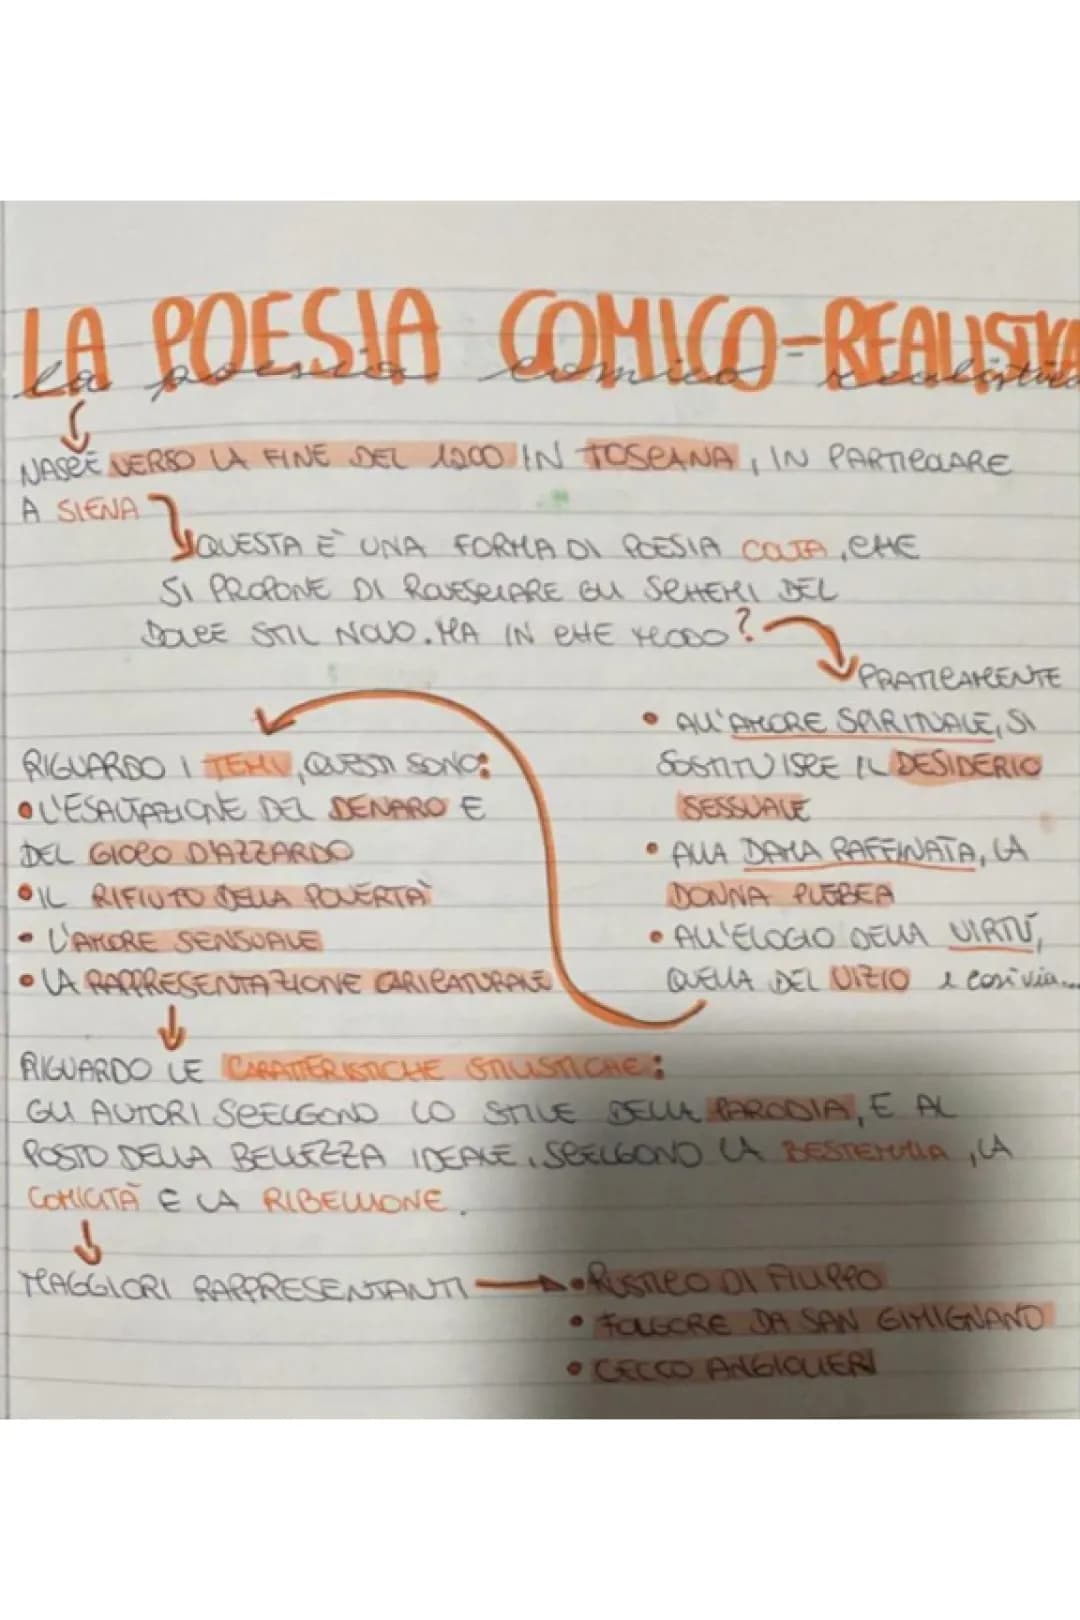 LA POESIA COMICO-REALISTICA
la poesia comico realistica
NASCE VERSO LA FINE DEL 1200 IN TOSCANA, IN PARTICOLARE
A SIENA
QUESTA È UNA FORMA DI POESIA COLTA, CHE
SI PROPONE DI ROVESCIARE GLI SCHEMI DEL
DOLCE STIL NOVO. MA IN CHE MODO?
PRATICAMENTE
• ALL'AMORE SPIRITUALE, SI
SOSTITUISCE IL DESIDERIO
SESSUALE
• ALLA DAMA RAFFINATA, LA
DONNA PLEBEA
• ALL'ELOGIO DELLA VIRTÙ,
QUELLA DEL VIZIO e così via...
RIGUARDO I TEMI, QUESTI SONO:
• L'ESALTAZIONE DEL DENARO E
DEL GIOCO D'AZZARDO
• IL RIFIUTO DELLA POVERTÀ
• L'AMORE SENSUALE
• LA RAPPRESENTAZIONE CARICATURALE
RIGUARDO LE CARATTERISTICHE STILISTICHE:
GLI AUTORI SCELGONO LO STILE DELLA PARODIA, E AL
POSTO DELLA BELLEZZA IDEALE, SCELGONO LA BESTEMMIA, LA
COMICITÀ E LA RIBELLIONE.
MAGGIORI RAPPRESENTANTI
• RUSTICO DI FILIPPO
• FOLGORE DA SAN GIMIGNANO
• CECCO ANGIOLIERI